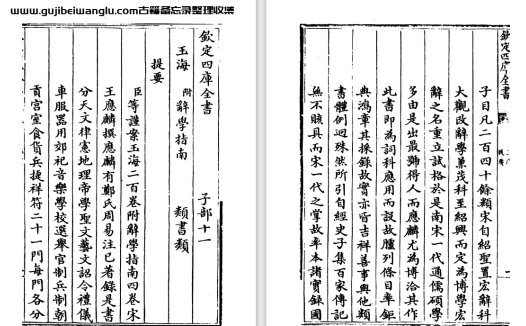 www.gujibeiwanglu.com古籍备忘录整理收集
欽定四庫全書
玉海 附辭學指南
子部十一
類書類
提要
臣等謹案玉海二百卷附辭學指南四卷宋
王應麟撰應麟有鄭氏周易注已著錄是書
分天文律憲地理帝學聖文藝文詔令禮儀
車服器用郊祀音樂學校選舉官制兵制朝
貢宮室食貨兵捷祥符二十一門每門各分
欽定四庫全書
子目凡二百四十餘類宋自紹聖置宏辭科
大觀改辭學兼茂科至紹興而定為博學宏
辭之名重立試格於是南宋一代通儒碩學
多由是出最號得人而應麟尤為博洽其作
此書即為詞科應用而設故臚列條目率鉅
典鴻章其採錄故實亦皆吉祥善事與他類
書體例迥殊然所引自經史子集百家傳記
無不賅具而宋一代之掌故率本諸實錄國